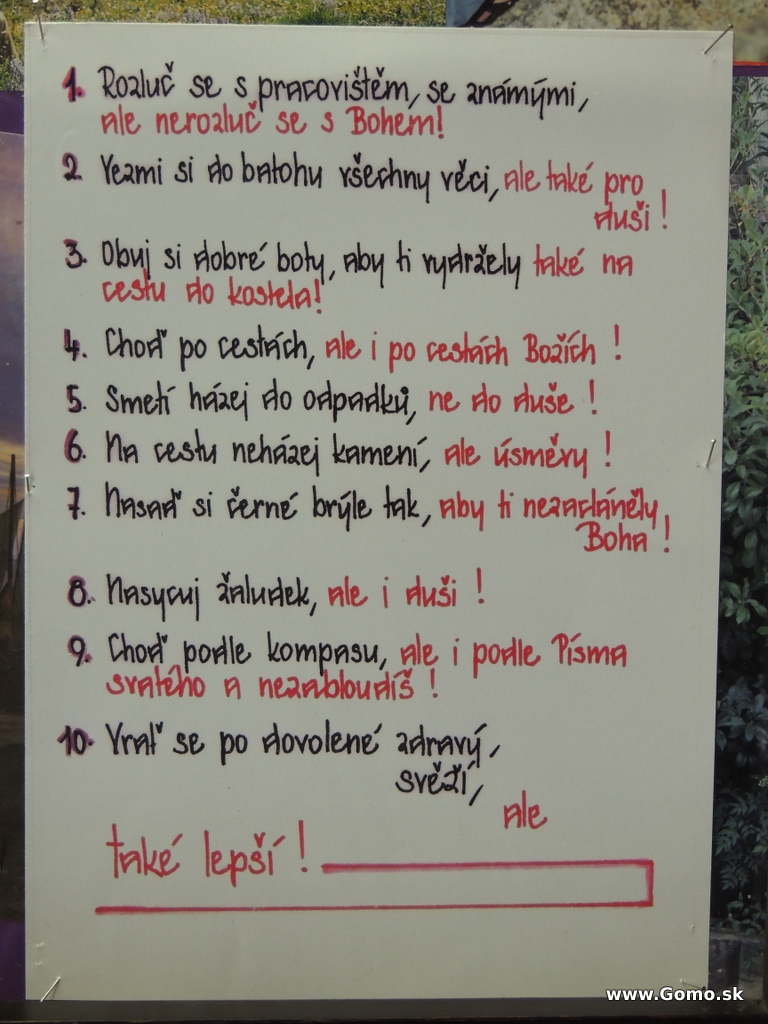 1. Rozluč se s pracovištěm, se známými,
ale nerozluč se s Bohem!
2. Vezmi si do batohu všechny věci, ale také pro
duši!
3. Obuj si dobré boty, aby ti vydržely také na
cestu do kostela!
4. Choď po cestách, ale i po cestách Božích!
5. Smetí házej do odpadků, ne do duše!
6. Na cestu neházej kamení, ale úsměvy!
7. Nasaď si černé brýle tak, aby ti nezacláněly
Boha!
8. Nasycuj žaludek, ale i duši!
9. Choď podle kompasu, ale i podle Písma
svatého a nezabloudíš!
10. Vrať se po dovolené zdravý,
svěží,
ale
také lepší!
www.Gomo.sk